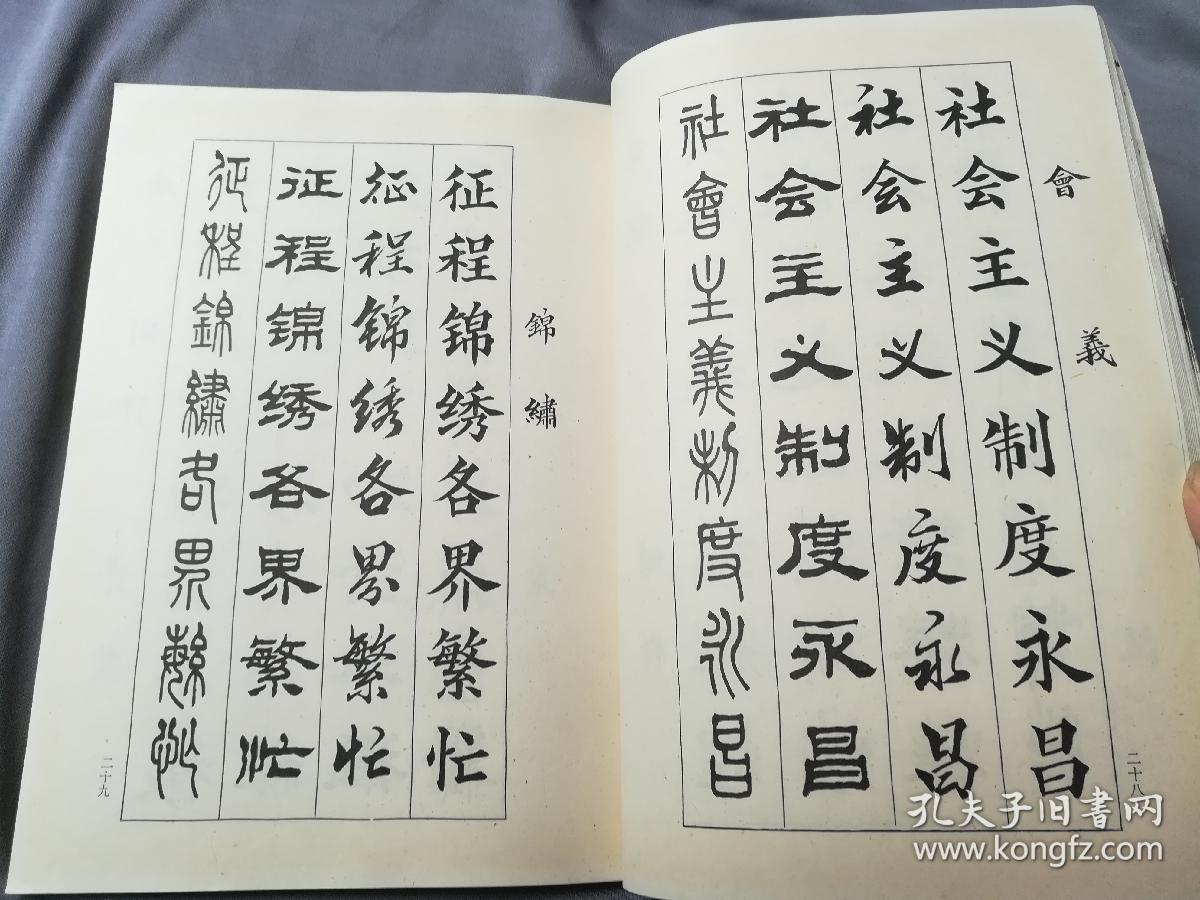 會
義
社会主义制度永昌
社会主义制度永昌
社会主义制度永昌
社會主義制度永昌
二十八
錦
繡
征程锦绣各界繁忙
征程锦绣各界繁忙
征程锦绣各界繁忙
征程錦繡各界繁忙
二十九
孔夫子旧书网
www.kongfz.com